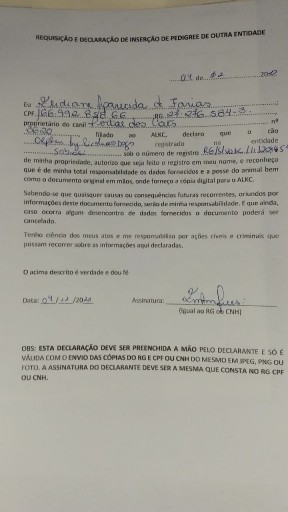 REQUISIÇÃO E DECLARAÇÃO DE INSERÇÃO DE PEDIGREE DE OUTRA ENTIDADE
Eu Lidiane Aparecida de Farias
CPF RG
proprietário do canil Portal dos nº
filiado ao ALKC, declaro que o cão
registrado na entidade
sob o número de registro
de minha propriedade, autorizo que seja feito o registro em meu nome, e reconheça
que é de minha total responsabilidade os dados fornecidos e a posse do animal bem
como o documento original em mãos, onde forneço a cópia digital para o ALKC.
Sabendo-se que quaisquer causas ou consequências futuras recorrentes, oriundos por
informações deste documento fornecido, serão de minha responsabilidade. E que ainda,
caso ocorra algum desencontro de dados fornecidos o documento poderá ser
cancelado.
Tenho ciência dos meus atos e me responsabilizo por ações cíveis e criminais que
possam recorrer sobre as informações aqui declaradas.
O acima descrito é verdade e dou fé
Data: Assinatura:
(Igual ao RG ou CNH)
OBS: ESTA DECLARAÇÃO DEVE SER PREENCHIDA A MÃO PELO DECLARANTE E SÓ É
VÁLIDA COM O ENVIO DAS CÓPIAS DO RG E CPF OU CNH DO MESMO EM JPEG, PNG OU
FOTO. A ASSINATURA DO DECLARANTE DEVE SER A MESMA QUE CONSTA NO RG CPF
OU CNH.